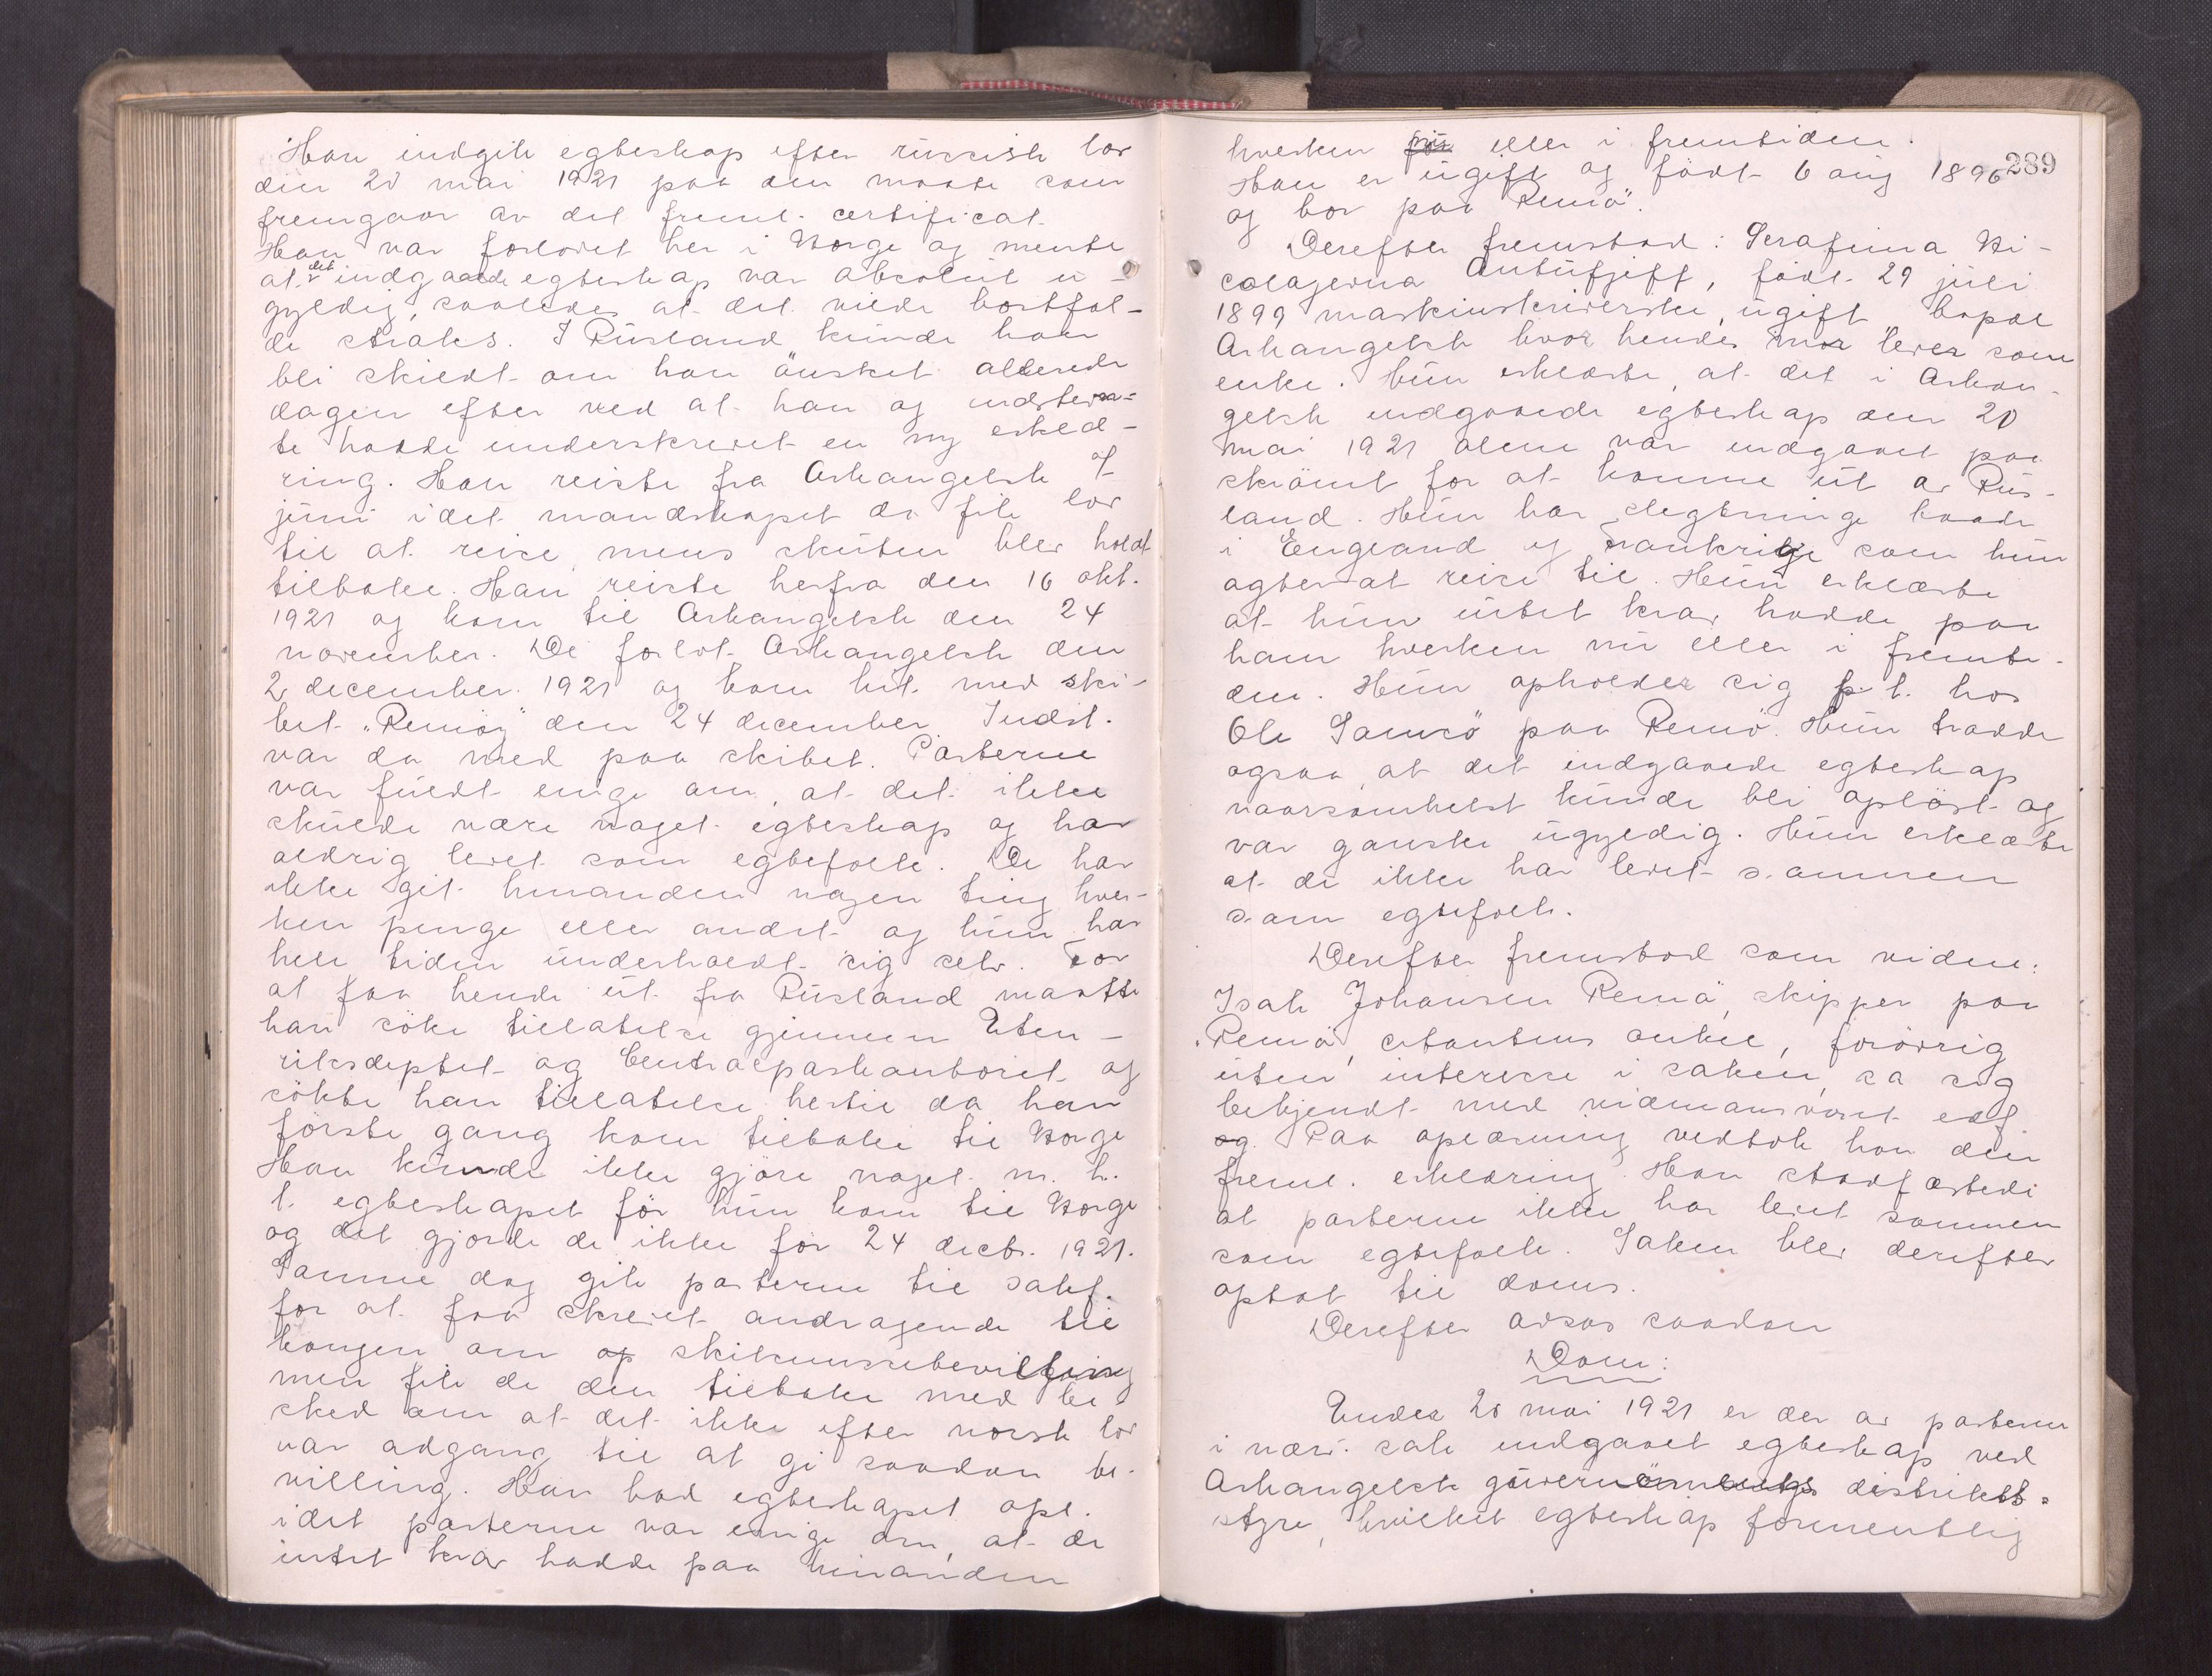 Han indgik egteskap efter russisk lov
den 20 mai 1921 paa den maate som
fremgaar av det freml. certificat.
Han var forlovet her i Norge og mente
at det indgaaede egteskap var absolut u-
gyldig, saaledes at det vilde bortfal-
de straks. I Rusland kunde han
bli skildt om han önsket allerede
dagen efter ved at han og indstevn-
te hadde underskrevet en ny erklæ-
ring. Han reiste fra Arkangelsk 9/
juni idet mandskapet da fik lov
til at reise mens skuten blev holdt
tilbake. Han reiste herfra den 16 okt.
1921 og kom til Arkangelsk den 24
november. De forlot Arkangelsk den
2 december 1921 og kom hit med ski-
bet "Remöy" den 24 december Indst.
var da med paa skibet. Parterne
var fuldt enige om, at det ikke
skulde være noget egteskap og har
aldrig levet som egtefolk. De har
ikke git hinanden nogen ting hver-
ken penge eller andet og hun har
hele tiden underholdt sig selv. For
at faa hende ut fra Rusland maatte
han söke tillatelse gjennem Uten-
riksdeptet og Centralpaskontoret og
sökte han tillatelse hertil da han
förste gang kom tilbake til Norge
Han kunde ikke gjöre noget m. h.
t. egteskapet för hun kom til Norge
og det gjorde de ikke för 24 decbr. 1921.
Samme dag gik parterne til sakf.
for at faa skrevet andragende til
kongen om op skilsmissebevilling
men fik de den tilbake med be-
sked om at det ikke efter norsk lov
var adgang til at gi saadan be-
villing. Han bad egteskapet opl.
idet parterne var enige om, at de
intet krav hadde paa hinanden
289
hverken nu eller i fremtiden.
Han er ugift og födt 6 aug 1896
og bor paa Remö.
Derefter fremstod: Serafima Ni-
colajevna Antufjeff, födt 29 juli
1899 maskinskriverske, ugift bopæl
Arkangelsk hvor hendes mor lever som
enke. Hun erklærte, at det i Arkan-
gelsk indgaaede egteskap den 20
mai 1921 alene var indgaaet paa
skrömt for at komme ut av Rus-
land. Hun har slegtninge baade
i England og Frankrige som hun
agter at reise til. Hun erklærte
at hun intet krav hadde paa
ham hverken nu eller i fremti-
den. Hun opholder sig p. t. hos
Ole Samsö paa Remö. Hun trodde
ogsaa at det indgaaede egteskap
naarsomhelst kunde bli oplöst og
var ganske ugyldig. Hun erklærte
at de ikke har levet sammen
som egtefolk.
Derefter fremstod som vidne:
Isak Johansen Remö, skipper paa
"Remö", citantens onkel, forövrig
uten interesse i saken, sa sig
bekjendt med vidneansvaret
og. Paa oplæsning vedtok han den
freml. erklæring. Han stadfæstede
at parterne ikke har levet sammen
som egtefolk. Saken blev derefter
optat til doms.
Derefter avsas saadan
Dom:
Under 20 mai 1921 er der av parterne
i nærv. sak indgaaet egteskap ved
Arkangelsk guvernörments distrikts-
styre, hvilket egteskap formentlig